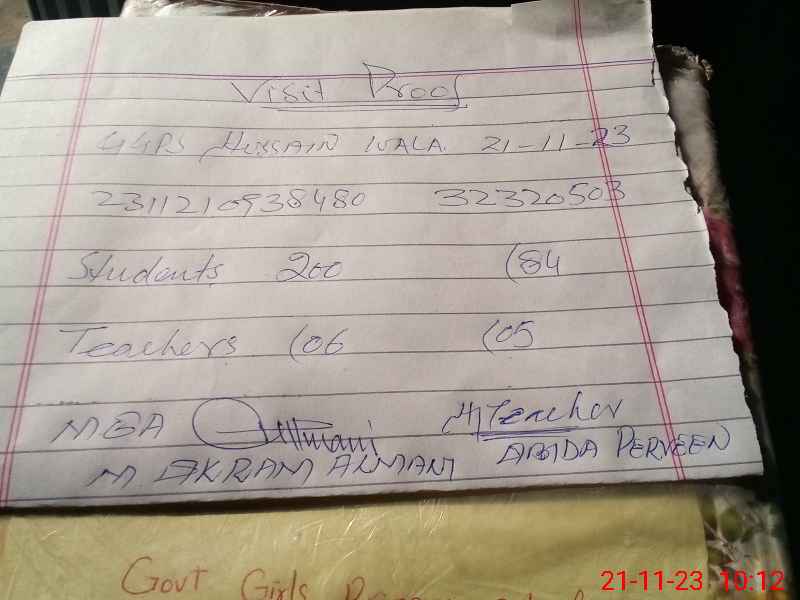 Visit Proof
GGPS HUSSAIN WALA 21-11-23
2311210938480 32320503
Students 200 (84
Teachers (06 (05
MEA H/Teacher
M. AKRAM ALMANI ABIDA PERVEEN
Govt Girls
21-11-23 10:12